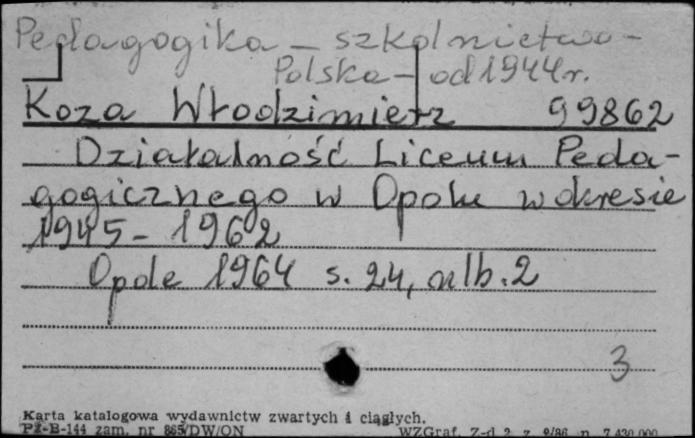 Pedagogika - szkolnictwo -
Polska - od 1944 r.
Koza Włodzimierz 99862
Działalność Liceum Peda-
gogicznego w Opolu w okresie
1945 - 1962
Opole 1964 s. 24, nlb. 2
3
Karta katalogowa wydawnictw zwartych i ciągłych.
Pz-B-144 zam. nr 865/DW/ON WZGraf. Z-d 2 z. 9/86 n. 7.430.000